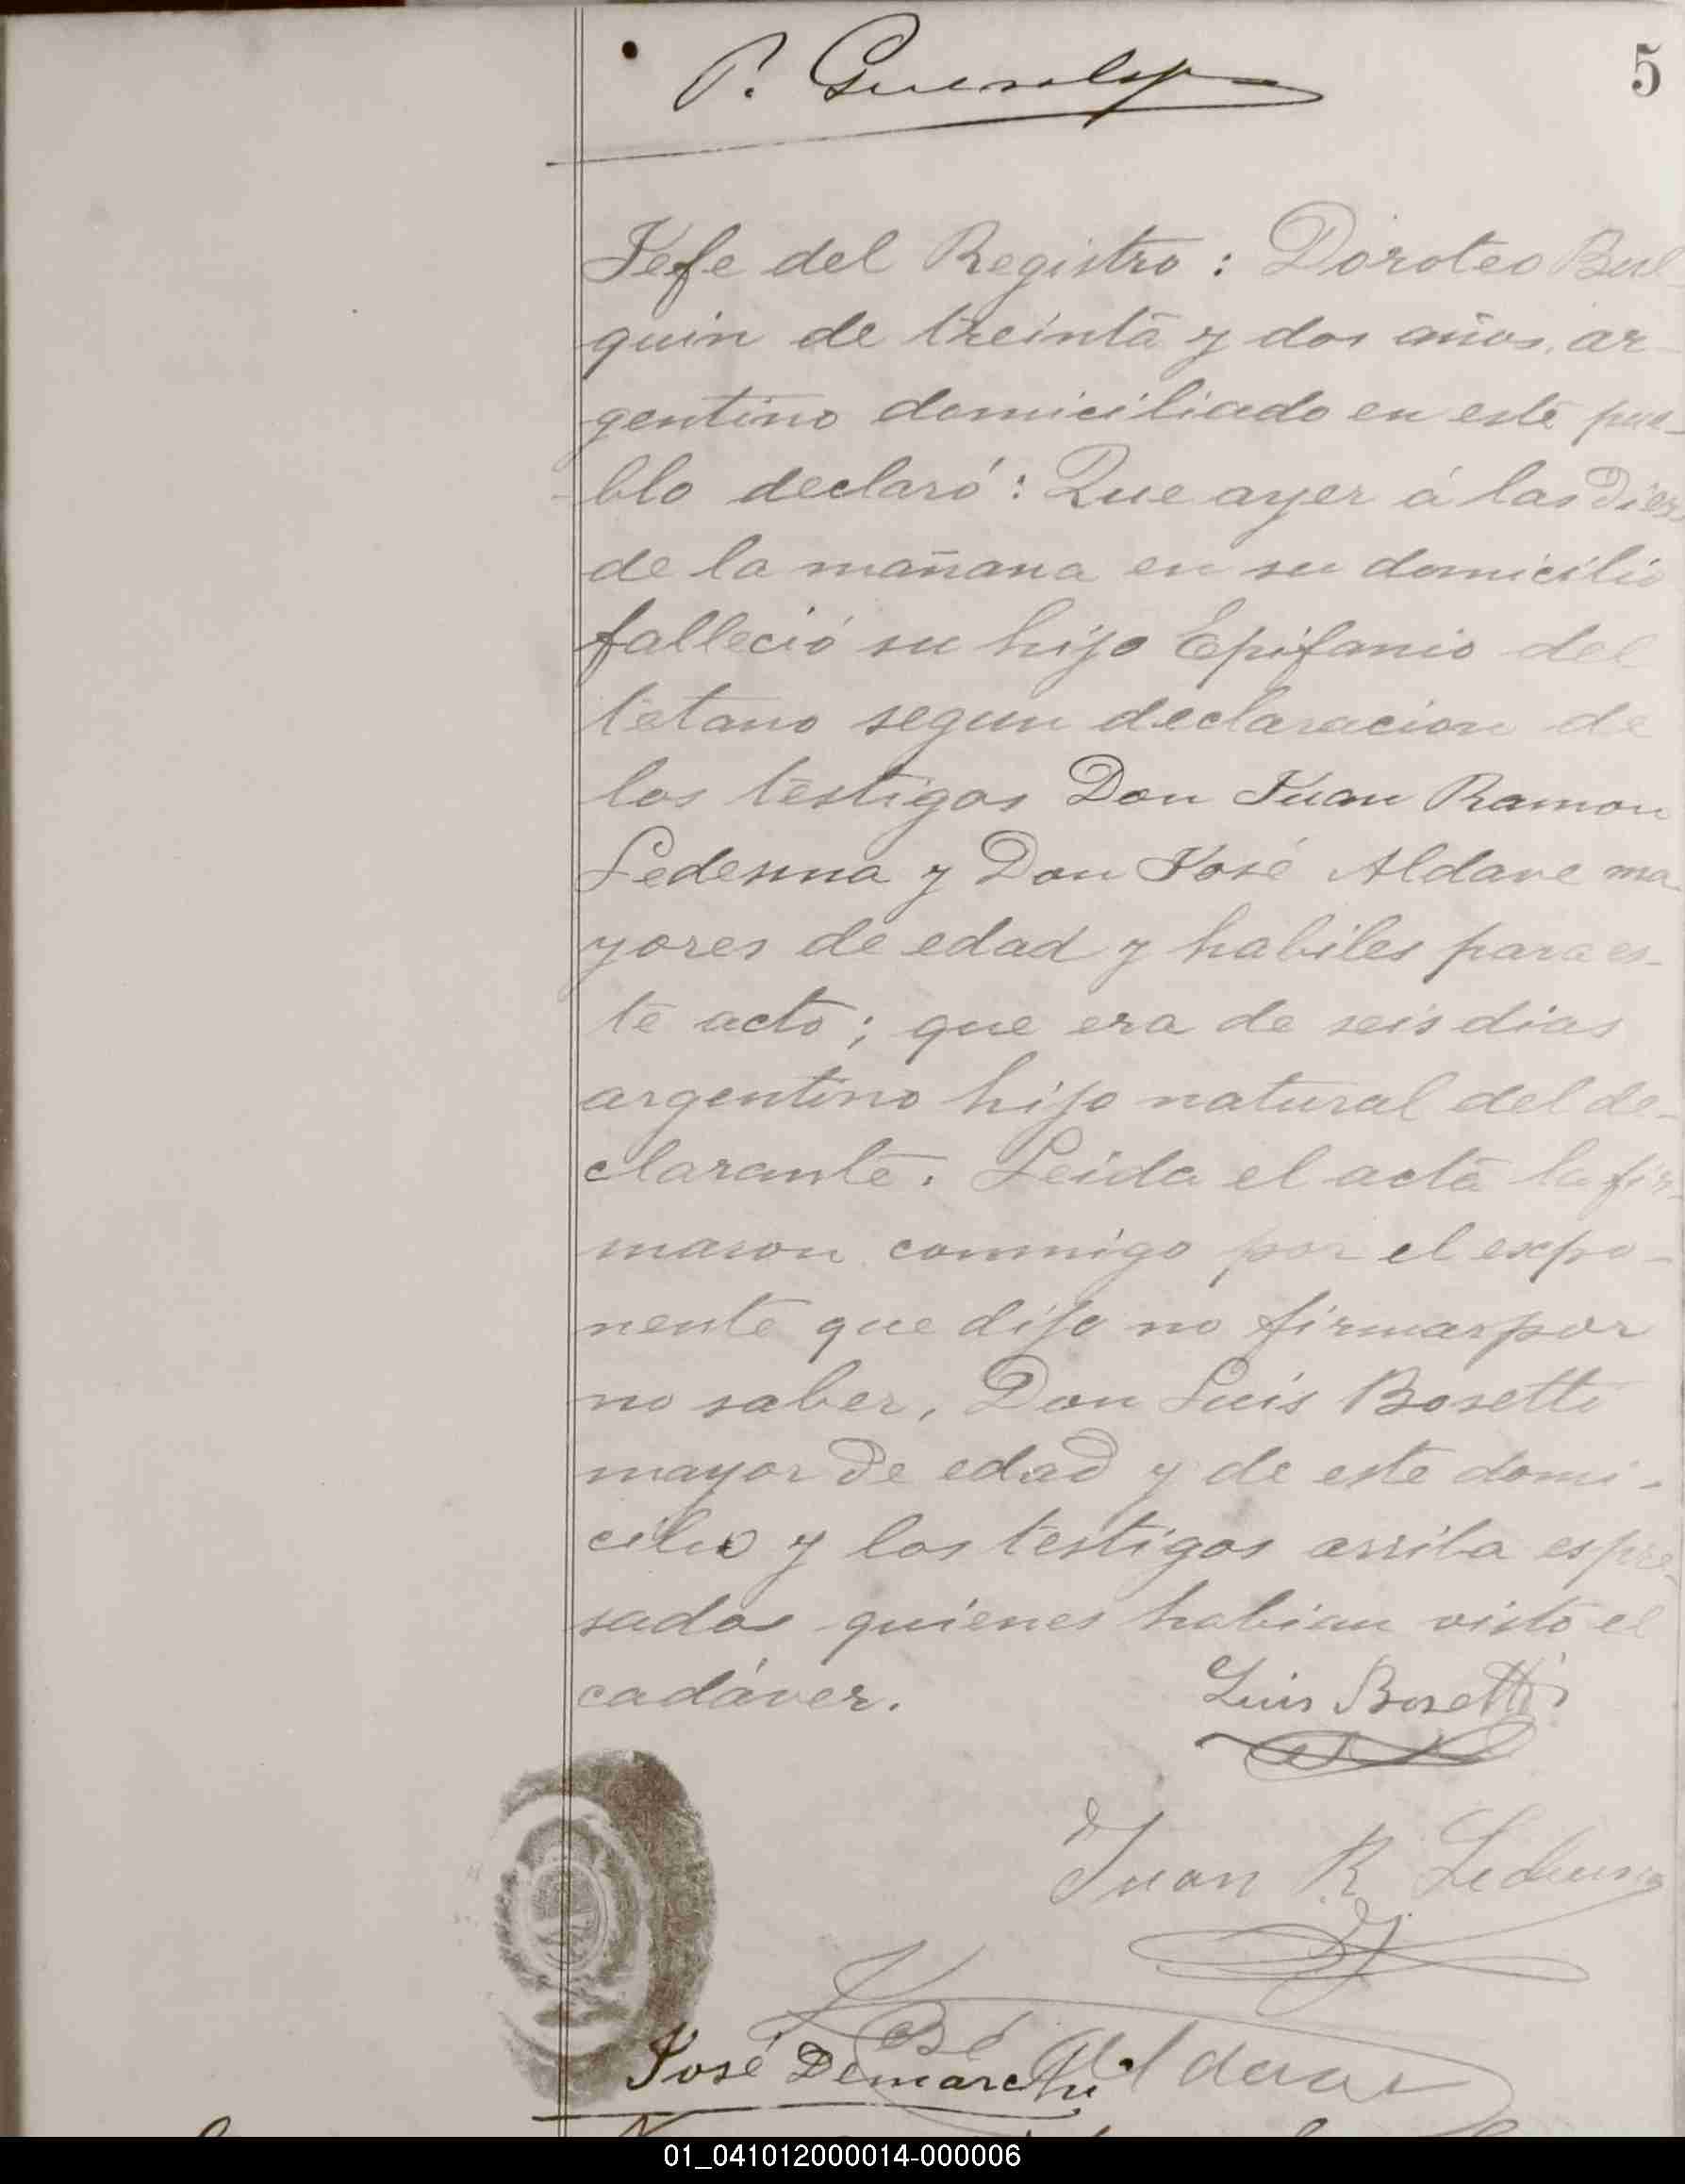 5
P.
Jefe del Registro: Doroteo Bul-
quin de treinta y dos años, ar-
gentino domiciliado en este pue-
blo declaró: Que ayer á las diez
de la mañana en su domicilio
falleció su hijo Epifanio del
tetano segun declaracion de
los testigos Don Juan Ramon
Ledesma y Don José Aldave ma-
yores de edad y habiles para es-
te acto; que era de seis dias
argentino hijo natural del de-
clarante. Leida el acta la fir-
maron conmigo por el expo-
nente que dijo no firmar por
no saber, Don Luis Bosetti
mayor de edad y de este domi-
cilio y los testigos arriba espre-
sados quienes habian visto el
cadáver.
Luis Bosetti
Juan R. Ledesma
José Aldave
José Demarchi
01_041012000014-000006